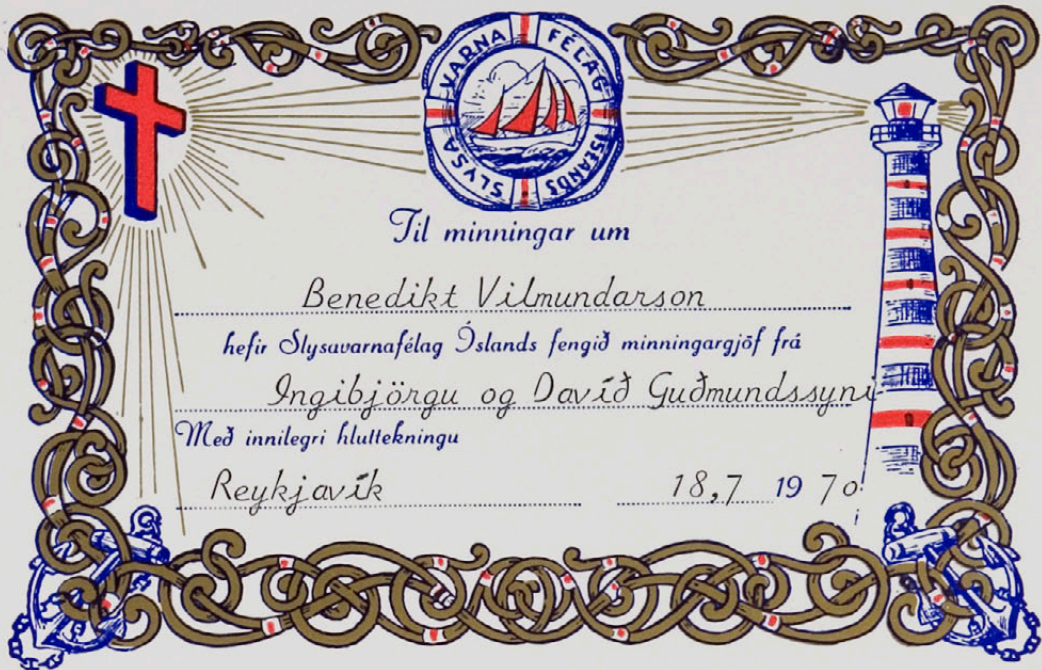 SLYSA VARNA FÉLAG ÍSLANDS
Til minningar um
Benedikt Vilmundarson
hefir Slysavarnafélag Íslands fengið minningargjöf frá
Ingibjörgu og Davíð Guðmundssyni
Með innilegri hluttekningu
Reykjavík 18,7 19 70